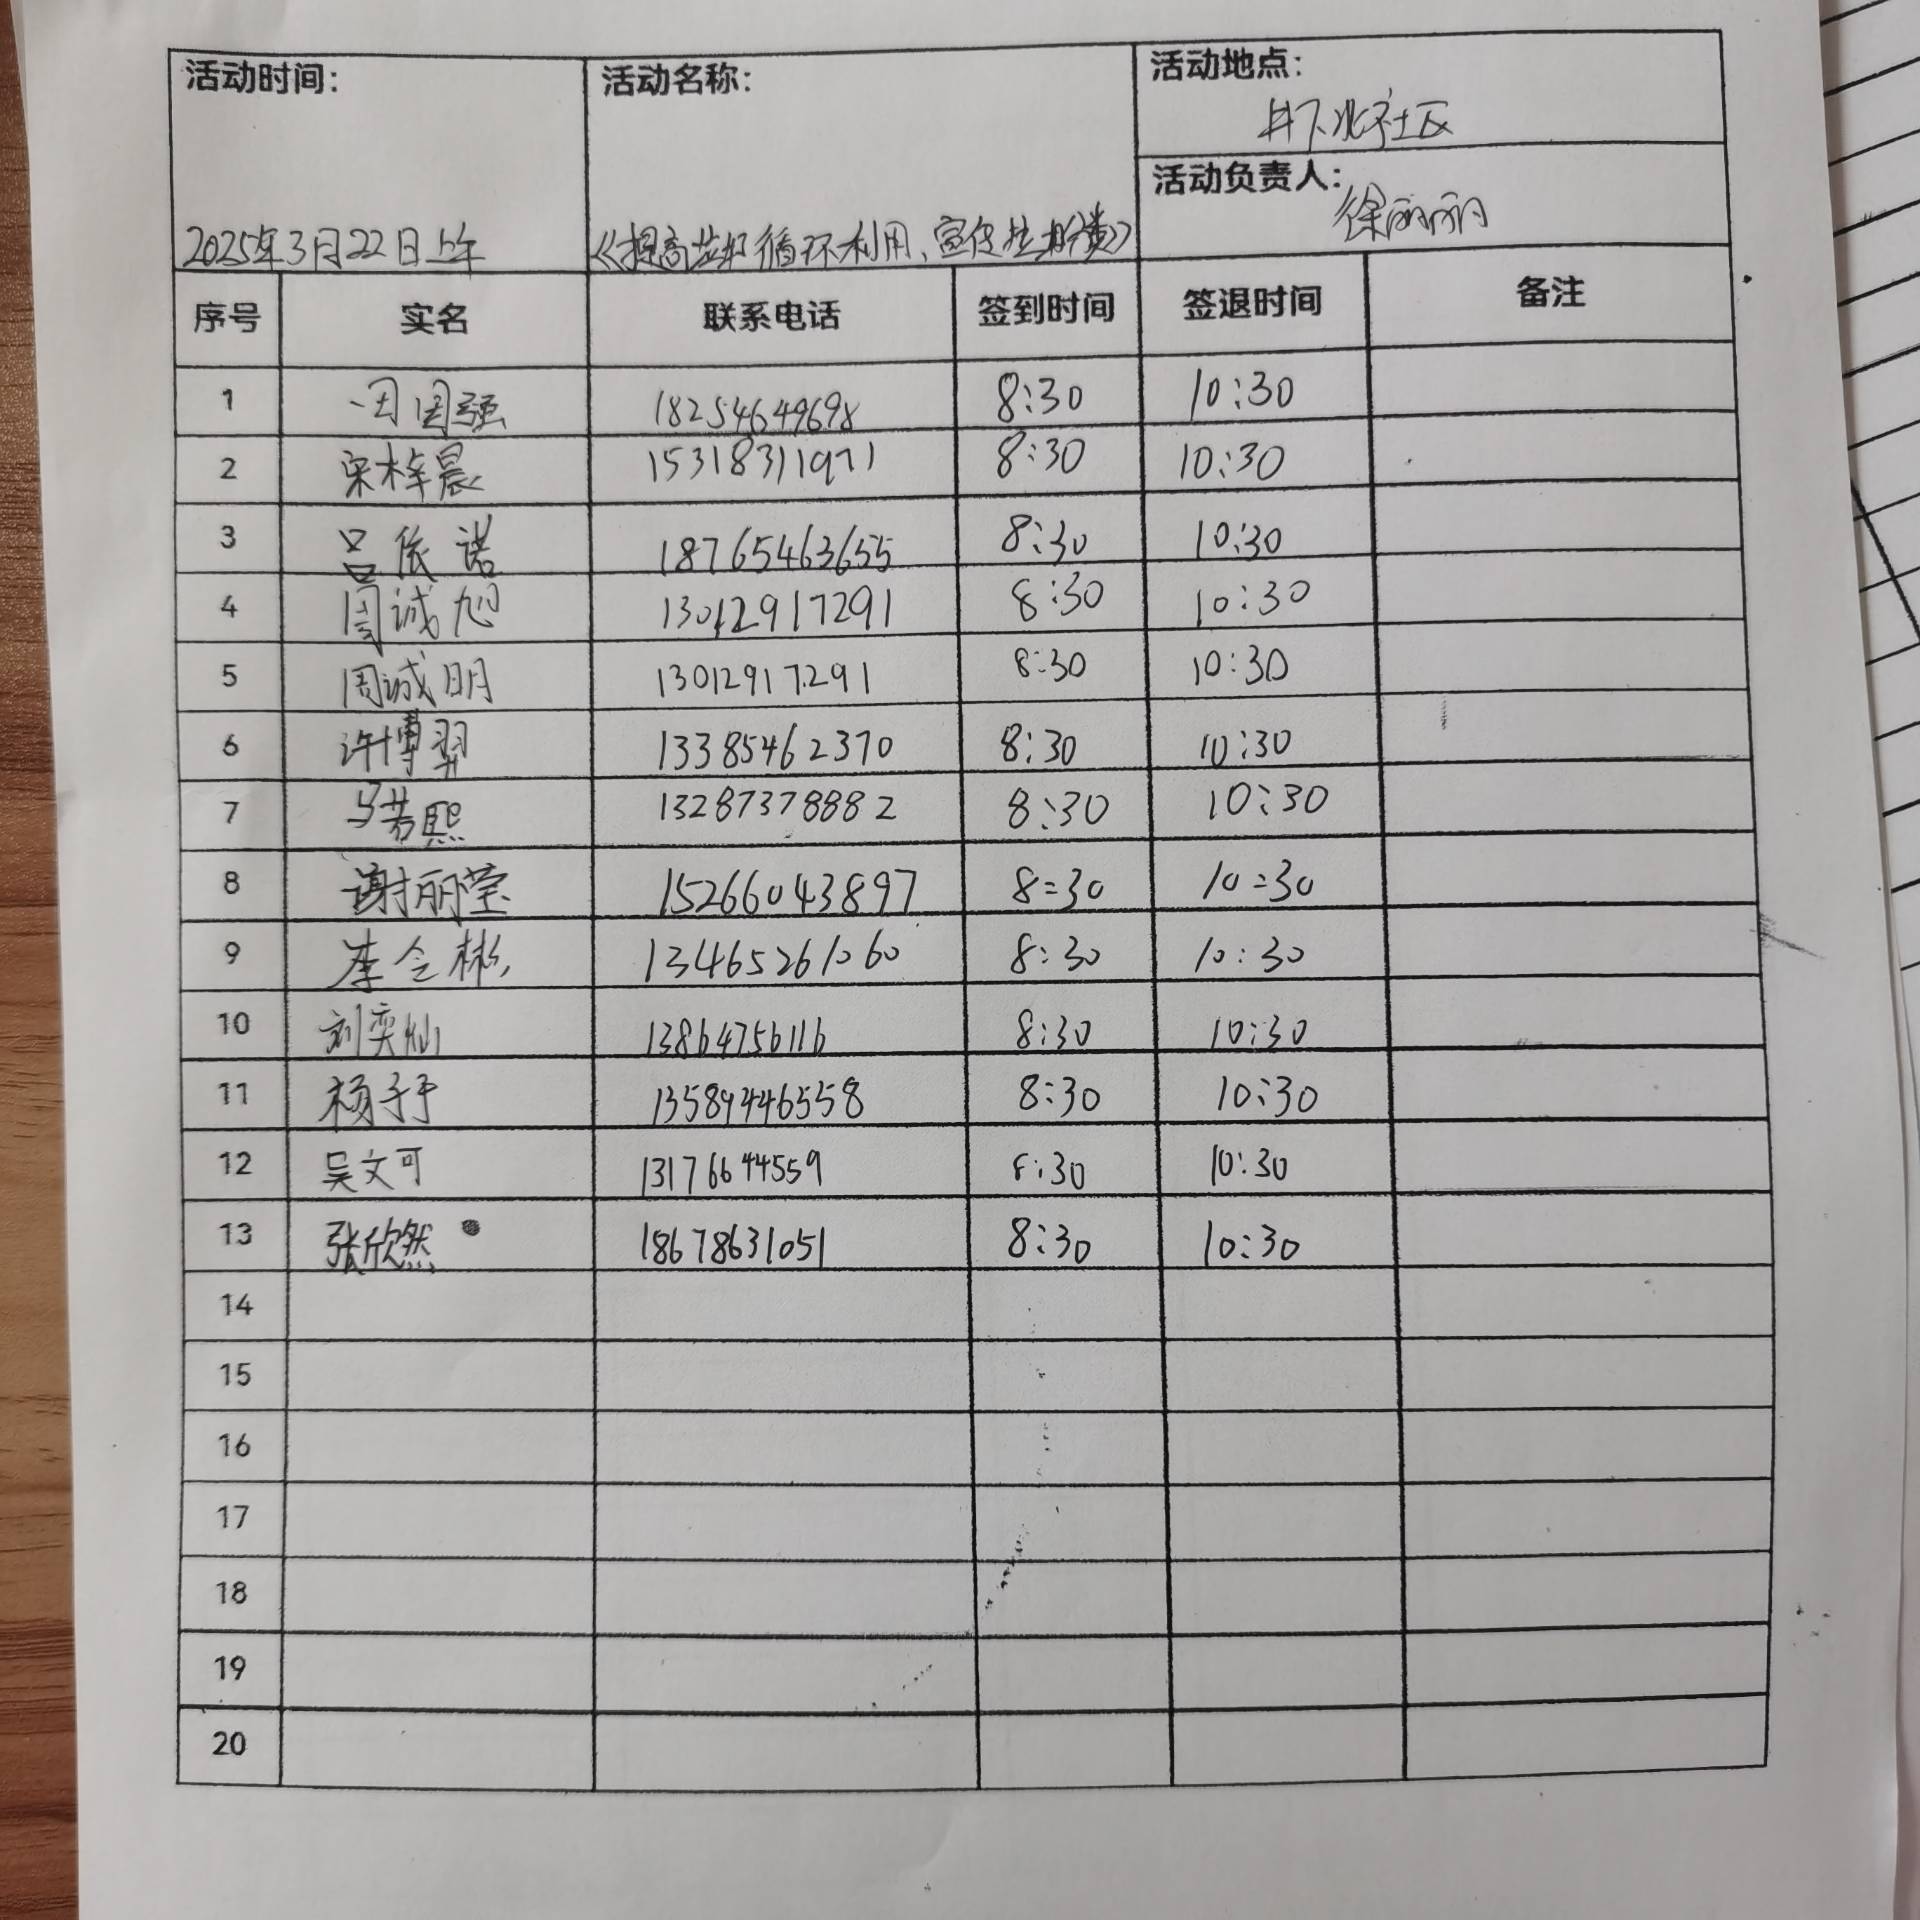 活动时间： 活动名称： 活动地点：
井下北社区
活动负责人：
徐丽丽
2025年3月22日上午 《提高垃圾循环利用、宣传垃圾分类》
序号 实名 联系电话 签到时间 签退时间 备注
1 国强 18254649698 8:30 10:30
2 宋梓晨 15318311971 8:30 10:30
3 吕依诺 18765463655 8:30 10:30
4 周诚旭 13012917291 8:30 10:30
5 周诚明 13012917291 8:30 10:30
6 许博羿 13385462370 8:30 10:30
7 马若熙 13287378882 8:30 10:30
8 谢丽莹 15266043897 8:30 10:30
9 李令彬 13465261060 8:30 10:30
10 刘奕灿 13864756116 8:30 10:30
11 杨子于 13589446558 8:30 10:30
12 吴文可 13176644559 8:30 10:30
13 张欣然 18678631051 8:30 10:30
14
15
16
17
18
19
20